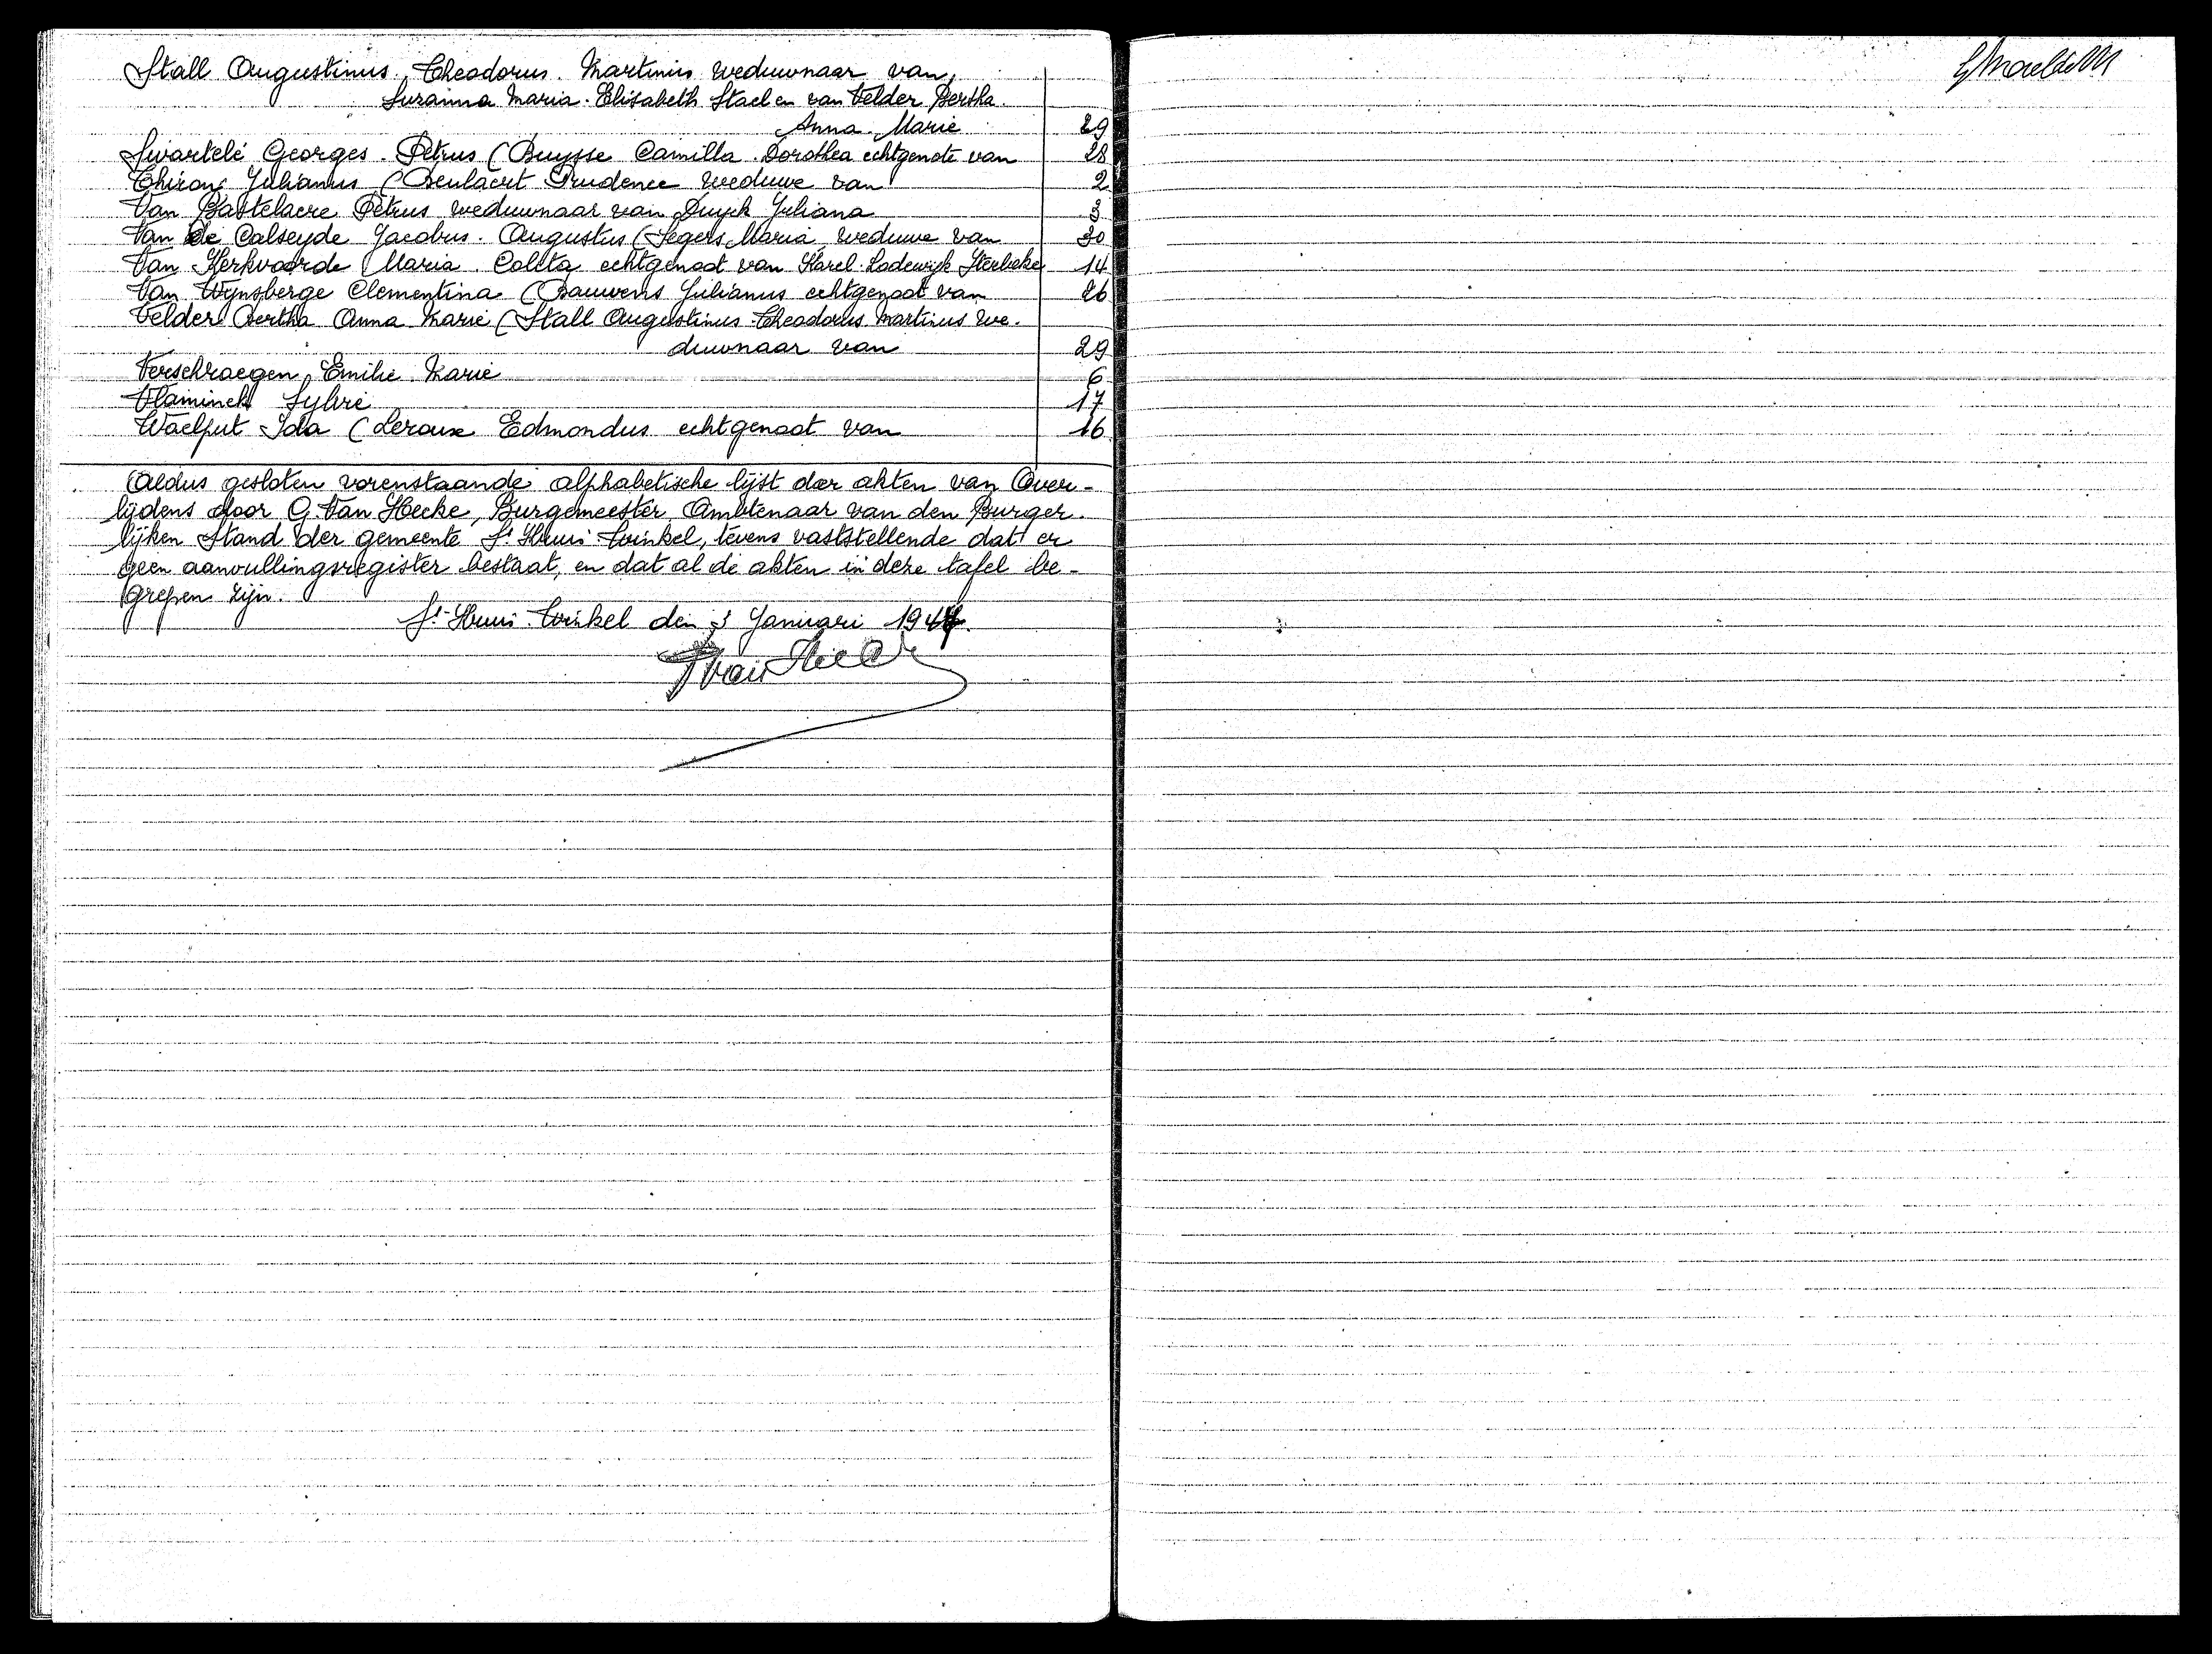 Stall Augustinus. Theodorus. Martinus weduwnaar van,
Suzanna Maria. Elisabeth Stael en van Velder Bertha.
Anna. Marie 29
Swartelé Georges. Petrus (Buysse Camilla. Dorothea echtgenote van 28
Thiron Julianus (Beulaert Prudence weduwe van 2
Van Bastelaere Petrus weduwnaar van Duyck Juliana 3
Van de Calseyde Jacobus. Augustus (Segers Maria weduwe van 30
Van Kerkvoorde Maria. Coleta echtgenoot van Karel. Lodewijk Sterbeke 14
Van Wynsberge Clementina (Bauwens Julianus echtgenoot van 26
Velder Bertha Anna Marie (Stall Augustinus Theodorus Martinus we-
duwnaar van 29
Verschraegen Emilie Marie 6
Vlaminck Sylvie 17
Waelput Ida (Leroux Edmondus echtgenoot van 16
Aldus gesloten vorenstaande alphabetische lijst der akten van Over-
lijdens door G. Van Hecke, Burgemeester Ambtenaar van den Burger-
lijken Stand der gemeente St. Kruis-Winkel, tevens vaststellende dat er
geen aanvullingsregister bestaat, en dat al de akten in deze tafel be-
grepen zijn.
St. Kruis-Winkel den 3 Januari 1944.